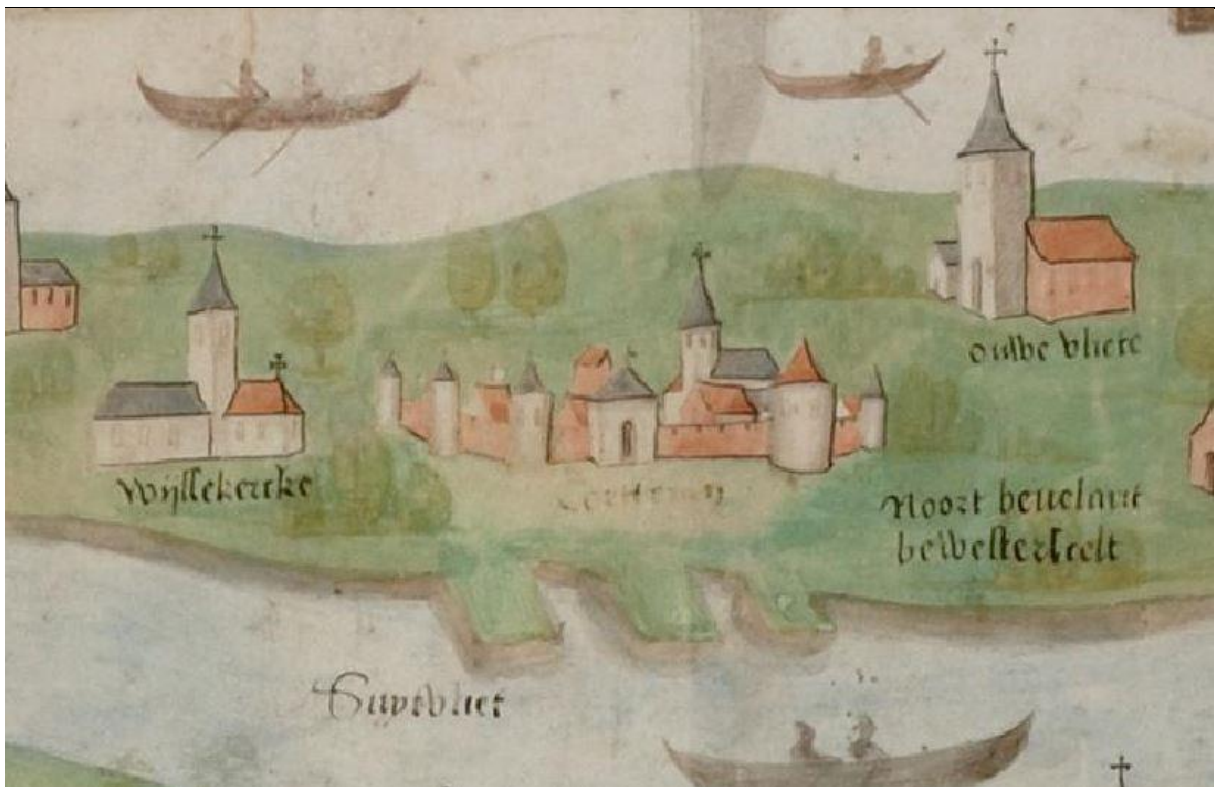 oudbe vliete
Wijssekercke
Noort beuelant
bewesterscelt
Suytvliet